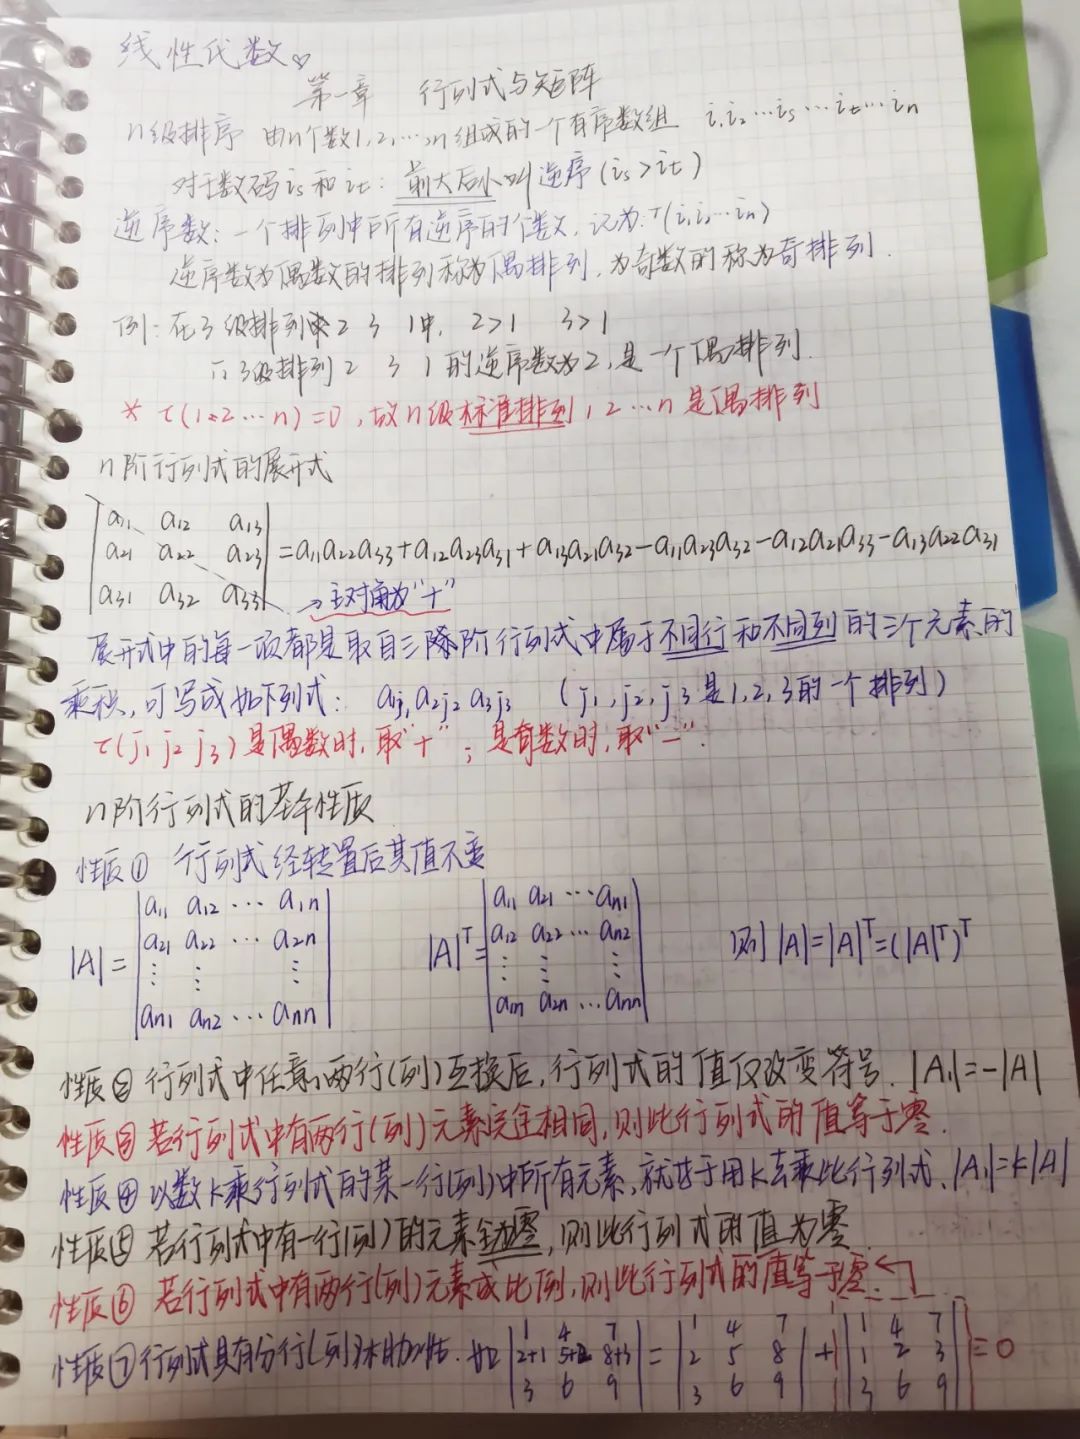 线性代数
第一章 行列式与矩阵
n级排序 由n个数1,2,…,n组成的一个有序数组 i₁i₂…iₛ…iₜ…iₙ
对于数码iₛ和iₜ: 前大后小叫逆序(iₛ>iₜ)
逆序数: 一个排列中所有逆序的个数, 记为: τ(i₁i₂…iₙ)
逆序数为偶数的排列称为偶排列, 为奇数的称为奇排列.
例: 在3级排列 2 3 1中, 2>1 3>1
∴ 3级排列 2 3 1的逆序数为2, 是一个偶排列.
* τ(1 2…n)=0, 故n级标准排列1 2…n是偶排列
n阶行列式的展开式
|a₁₁ a₁₂ a₁₃|
|a₂₁ a₂₂ a₂₃| =a₁₁a₂₂a₃₃+a₁₂a₂₃a₃₁+a₁₃a₂₁a₃₂-a₁₁a₂₃a₃₂-a₁₂a₂₁a₃₃-a₁₃a₂₂a₃₁
|a₃₁ a₃₂ a₃₃| →主对角为"+"
展开式中的每一项都是取自三阶行列式中属于不同行和不同列的三个元素的
乘积, 可写成如下列式: a₁j₁a₂j₂a₃j₃ (j₁,j₂,j₃是1,2,3的一个排列)
τ(j₁j₂j₃)是偶数时, 取"+"; 是奇数时, 取"-".
n阶行列式的基本性质
性质① 行列式经转置后其值不变
|a₁₁ a₁₂ … a₁ₙ| |a₁₁ a₂₁ … aₙ₁|
|A|= |a₂₁ a₂₂ … a₂ₙ| |A|ᵀ= |a₁₂ a₂₂ … aₙ₂| 则|A|=|A|ᵀ=(|A|ᵀ)ᵀ
|⋮ ⋮ ⋮| |⋮ ⋮ ⋮|
|aₙ₁ aₙ₂ … aₙₙ| |a₁ₙ a₂ₙ … aₙₙ|
性质② 行列式中任意两行(列)互换后, 行列式的值仅改变符号. |A₁|=-|A|
性质③ 若行列式中有两行(列)元素完全相同, 则此行列式的值等于零.
性质④ 以数k乘行列式的某一行(列)中所有元素, 就等于用k去乘此行列式. |A₁|=k|A|
性质⑤ 若行列式中有一行(列)的元素全为零, 则此行列式的值为零.
性质⑥ 若行列式中有两行(列)元素成比例, 则此行列式的值等于零
|1 4 7| |1 4 7| |1 4 7|
性质⑦ 行列式具有分行(列)相加性. 如 |2+1 5+2 8+3| = |2 5 8| + |1 2 3| =0
|3 6 9| |3 6 9| |3 6 9|